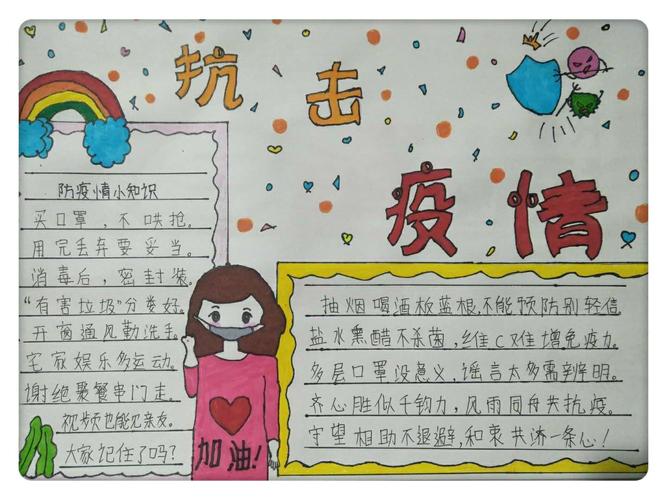 抗击
疫情
防疫情小知识
买口罩，不哄抢。
用完丢弃要妥当。
消毒后，密封装。
“有害垃圾”分类好。
开窗通风勤洗手。
宅家娱乐多运动。
谢绝聚餐串门走。
视频也能见亲友。
大家记住了吗？
加油！
抽烟喝酒板蓝根，不能预防别轻信。
盐水熏醋不杀菌，维C难增免疫力。
多层口罩没意义，谣言太多需辨明。
齐心胜似千钧力，风雨同舟共抗疫。
守望相助不退避，和衷共济一条心！